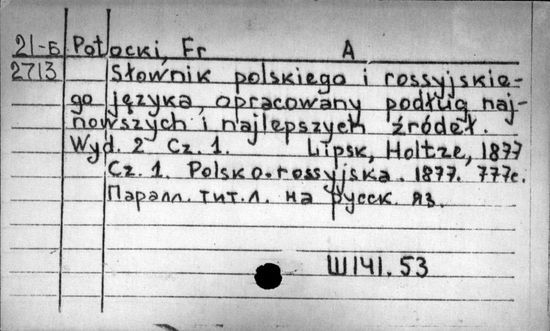 21-Б Potocki, Fr A
2713 Słownik polskiego i rossyjskie-
go języka, opracowany podług naj-
nowszych i najlepszych źródeł.
Wyd. 2 Cz. 1. Lipsk, Holtze, 1877
Cz. 1. Polsko-rossyjska. 1877. 777с.
Паралл. тит. л. на русск. яз.
Ш141.53